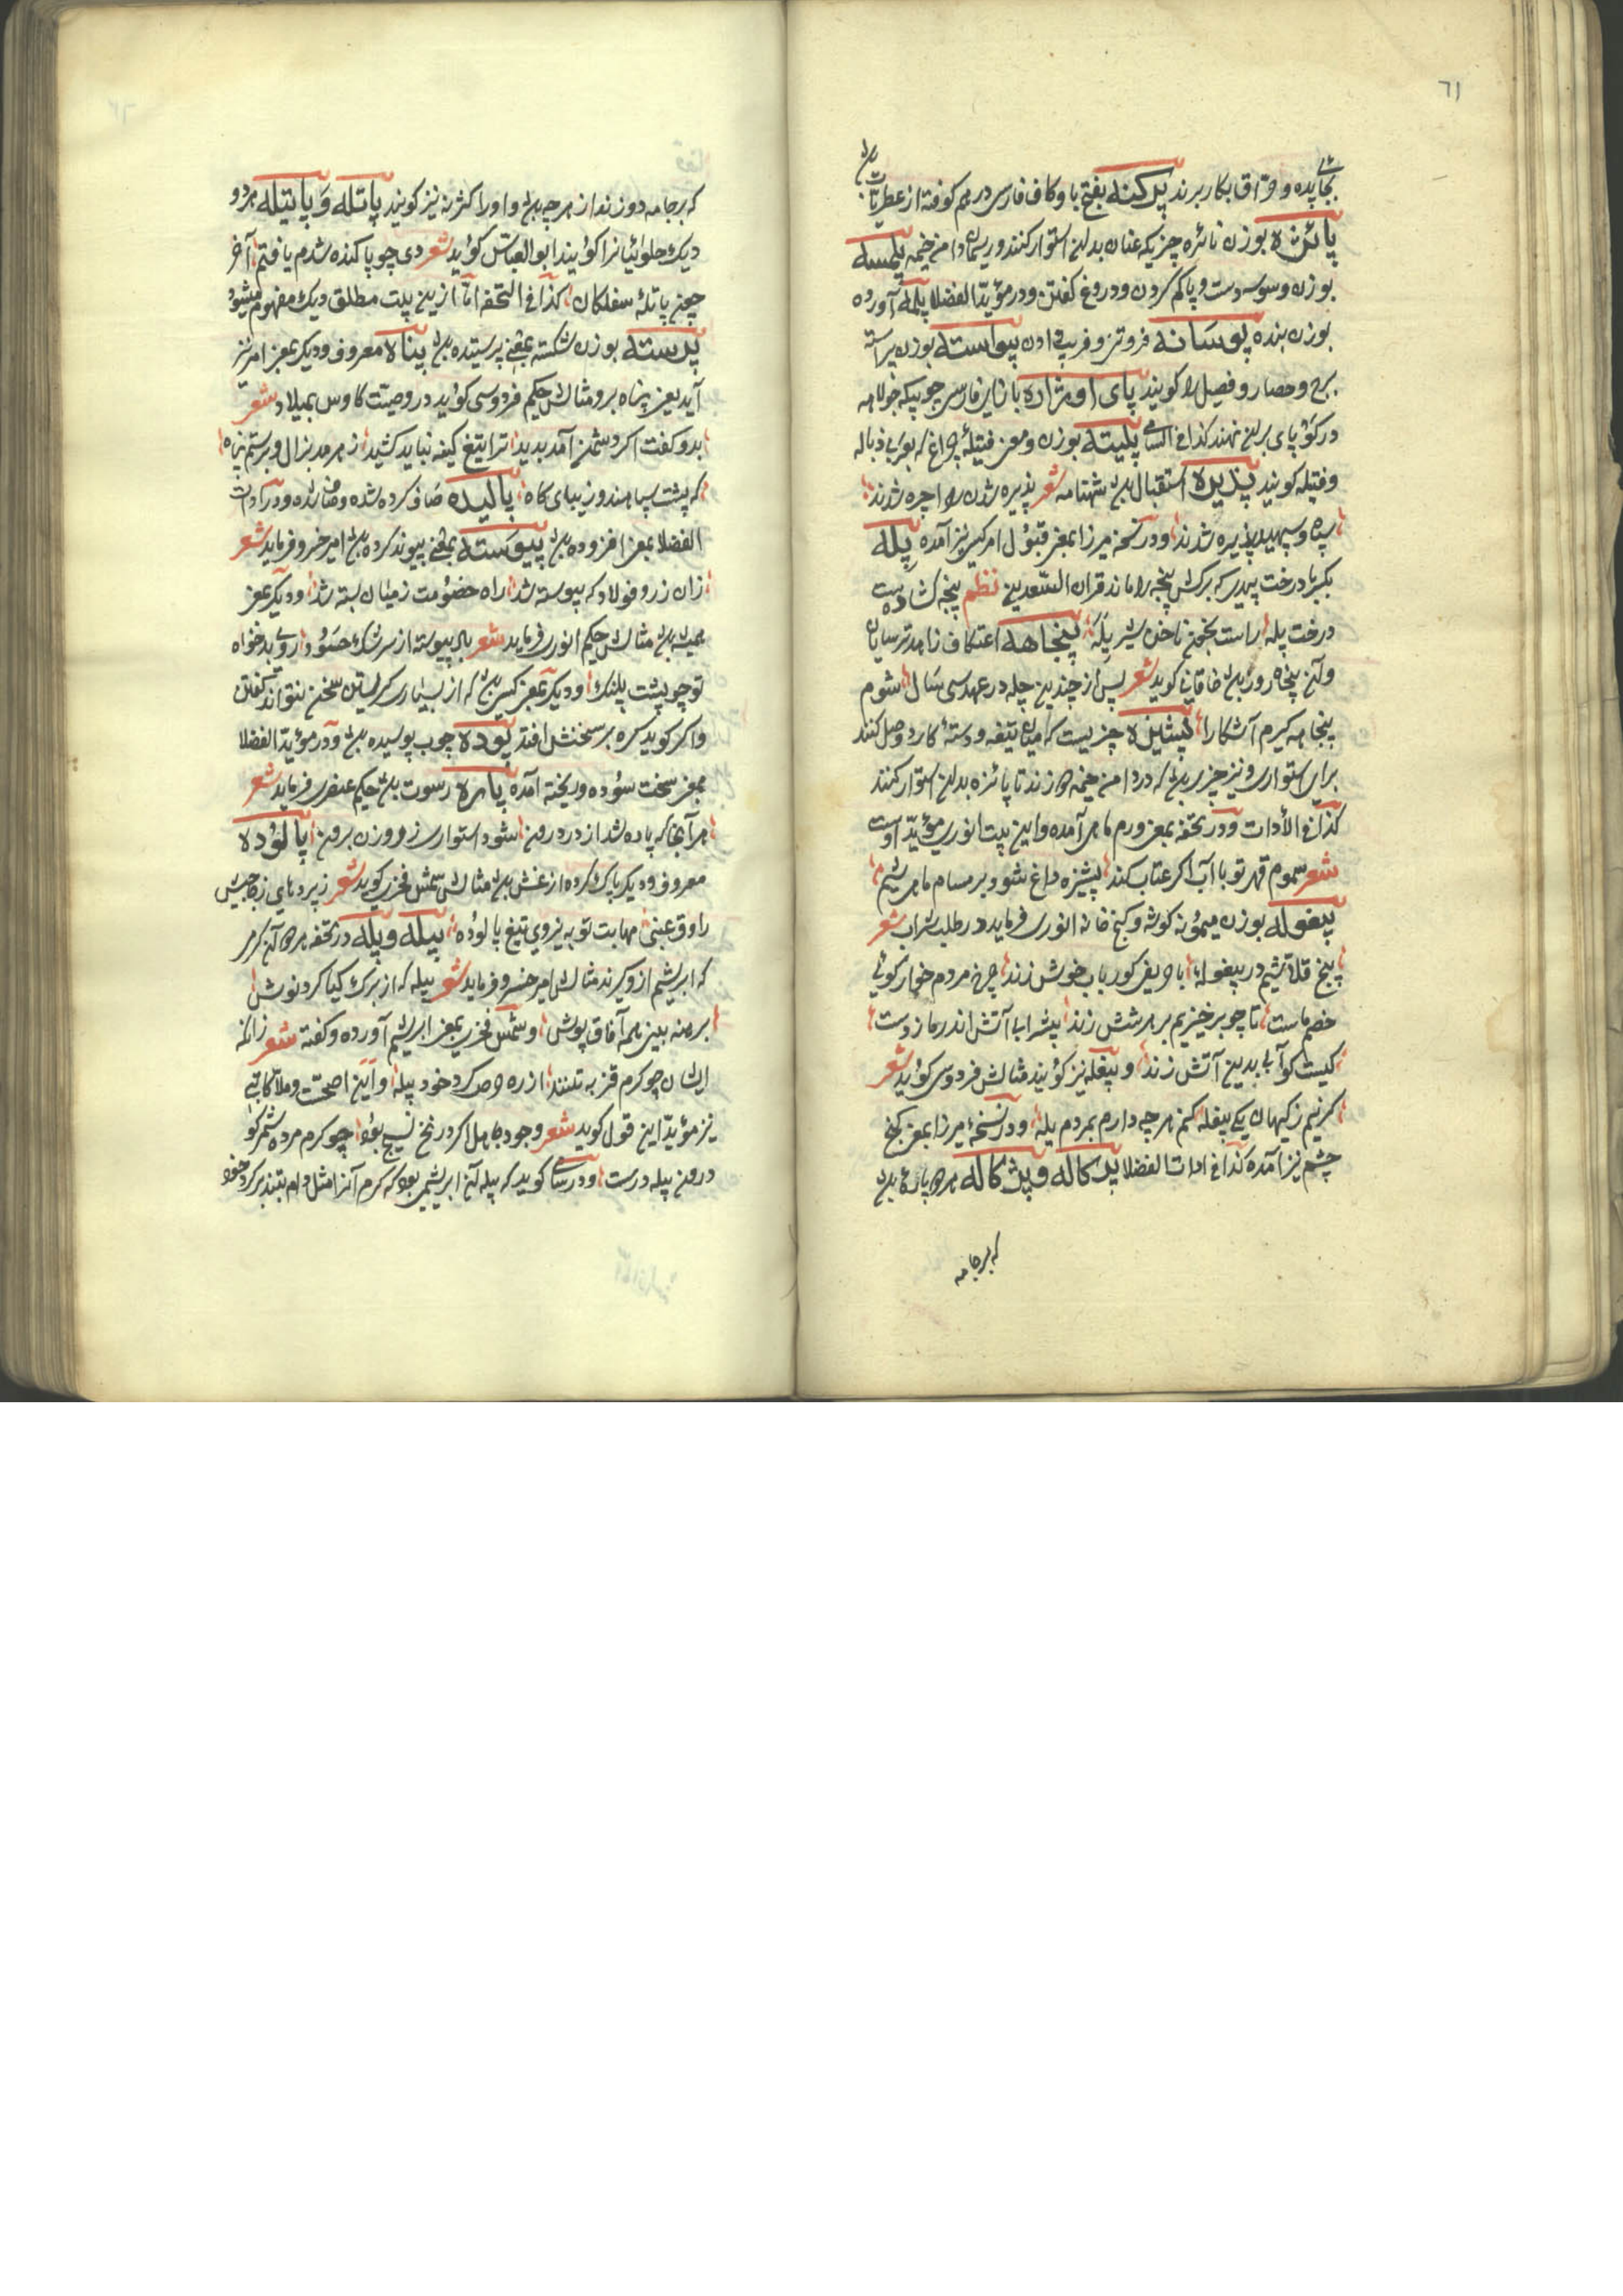 ٦١
بجایده و حراق بکار برند پرکنه بفتح با و کاف فارسی در هم کوفته از عطریات
پائزه بوزن نائزه چیزیکه عنان بدان استوار کنند و ریسمان دامن خیمه پلمسه
بوزن وسوسه دست و پا کم کردن و دروغ گفتن و در مؤید الفضلا پلمه آورده
بوزن بنده پوسانه فروتنی و فریب دادن پیواسته بوزن پیراسته
برج و حصار و فصیل را کویند پای اوژاره با زای فارسی چوبیکه جولاهه
در کو پای بران نهند کذا فی السامی پلیته بوزن و معنی فتیلهٔ چراغ که بعربی ذباله
و فتیله کویند پذیره استقبال شهنامه شعر پذیره شدن را چره شدند
سپاه و سپهبد پذیره شدند و در نسخه میرزا بمعنی قبول امر کسی نیز آمده پله
بکر با درخت بید که برکش پنجه را ماند قران السعدین نظم پنجه کشاده ست
درخت پله راست بخون ناخن شیر یله پنجاهه اعتکاف زاهد ترسایان
و آن پنجاه روز خاقانی کوید شعر پس از چندین چله در عهد سی سال شوم
پنجاهه کیرم آشکارا پشیزه چیزیست که میان تیغه و دستهٔ کارد وصل کنند
برای استواری و نیز چیزی که در دامن خیمه دوزند تا پائزه بدان استوار کنند
کذا فی الأدات و در تحفه بمعنی ورم ماهی آمده و این بیت انوری مؤید اوست
شعر سموم قهر تو با آب اکر عتاب کند پشیزه داغ شود بر مسام ماهی شیم
پیغوله بوزن میمونه کوشه و کنج خانه انوری فرماید در طلب شراب شعر
پنج قلاشیم در پیغوله با حریفی کو رباب خوش زند چرخ مردم خوار کوئی
خصم ماست تا چو برخیزیم بر هر شش زند بیشراب آتش اندر ما زدست
کیست کو آبی بدین آتش زند و پیغله نیز کویند مثالش فردوسی کوید شعر
کزینم ز کیهان یکی پیغله کنم هر چه دارم بمردم یله و در نسخهٔ میرزا بمعنی کنج
چشم نیز آمده کذا فی ادات الفضلا پرکاله و پژکاله هر دو پارهٔ
که بر جامه
که بر جامه دوزند از هر چه و او را کثره نیز کویند پاتله و پاتیله هر دو
دیک حلوائیانرا کویند ابو العباس کوید شعر دی چو پاکنده شدم یافتم آخر
چون پاتلهٔ سفلکان کذا فی التحفه اما ازین بیت مطلق دیک مفهوم میشود
پرسته بوزن شکسته بمعنی پرستیده پناه معروف و دیکر بمعنی امر نیز
آید یعنی پناه بر و مثالش حکیم فردوسی کوید در وصیت کاوس بمیلاد شعر
بدو کفت اکر دشمن آمد بدید ترا تیغ کینه نباید کشید ز هر بد بزال و برستم پناه
که پشت سپاهند و زیبای کاه پالیده صاف کرده شده و در ادات
الفضلا بمعنی افزوده پیوسته بمعنی پیوند کرده امیر خسرو فرماید شعر
زان زر و فولاد که پیوسته شد راه خصومت ز میان بسته شد و دیکر بمعنی
همیشه مثالش حکیم انوری فرماید شعر باد پیوسته از سرشک حسود روی بدخواه
تو چو پشت پلنک و دیکر بمعنی کسی که از بسیاری کریستن سخن نتواند کفتن
و اکر کوید کره بر سخنش افتد پوده چوب پوسیده و در مؤید الفضلا
بمعنی سخت سوده و ریخته آمده پاره رسوت حکیم عنصری فرماید شعر
هر آنجا که پاره شد از در درون شود استواری ز روزن برون پالوده
معروف و دیکر پاک کرده از غش مثالش شمس فخری کوید شعر ز پردهای زجاجیش
راوق عنبی مهابت تو به نیروی تیغ پالوده پیله و پله در تحفه هر دو آن کرم
که ابریشم ازو کیرند مثالش امیر خسرو فرماید شعر پیله که از برک کیا کرد نوش
برهنه بین همه آفاق پوش و شمس فخری بمعنی ابریشم آورده و کفته شعر زانکه
ایشان چو کرم قز به تنند از ره حرص کرد خود پیله و این اصحست و ملا کاتبی
نیز مؤید این قول کوید شعر وجود جاهل اکر در نخ نسیج بود چو کرم مرده شمر کو
درون پیله درست و در سامی کوید که پیله آن ابریشمی بود که کرم آنرا مثل دام بتند بر کرد خود